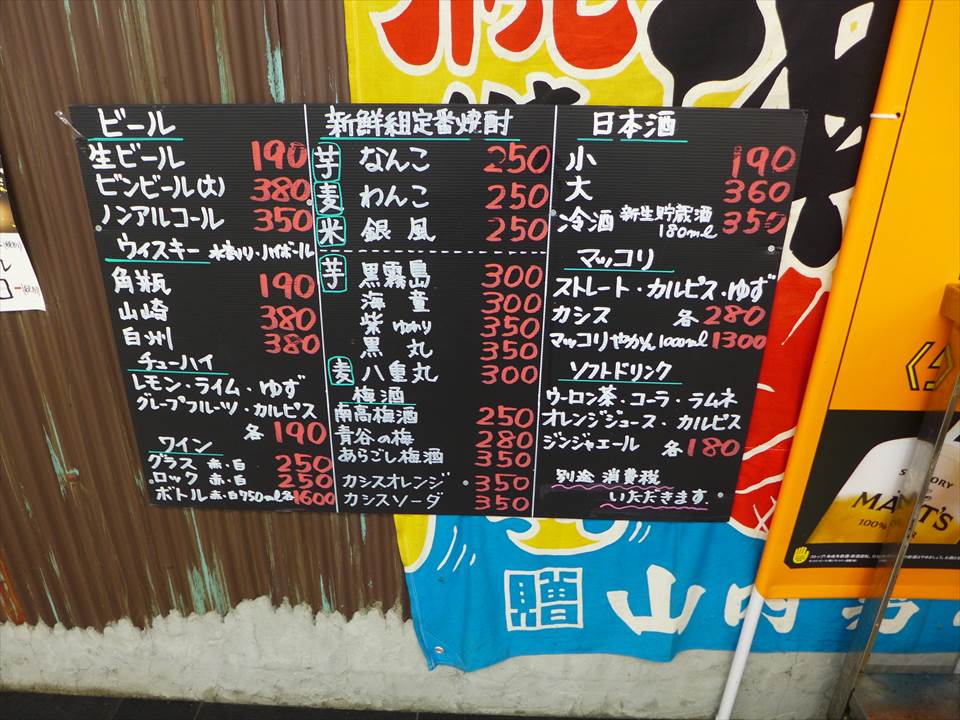 ビール
生ビール 190
ビンビール(大) 380
ノンアルコール 350
ウィスキー 水割り・ハイボール
角瓶 190
山崎 380
白州 380
チューハイ
レモン・ライム・ゆず
グレープフルーツ・カルピス
各190
ワイン
グラス 赤・白 250
ロック 赤・白 250
ボトル 赤・白750ml各1600
新鮮組定番焼酎
芋 なんこ 250
麦 わんこ 250
米 銀風 250
芋 黒霧島 300
海童 300
紫ゆかり 350
黒丸 350
麦 八重丸 300
梅酒
南高梅酒 250
青谷の梅 280
あらごし梅酒 350
カシスオレンジ 350
カシスソーダ 350
日本酒
小 190
大 360
冷酒 新生貯蔵酒 180ml 350
マッコリ
ストレート・カルピス・ゆず
カシス 各280
マッコリやかん1000ml 1300
ソフトドリンク
ウーロン茶・コーラ・ラムネ
オレンジジュース・カルピス
ジンジャエール 各180
別途 消費税
いただきます。
贈